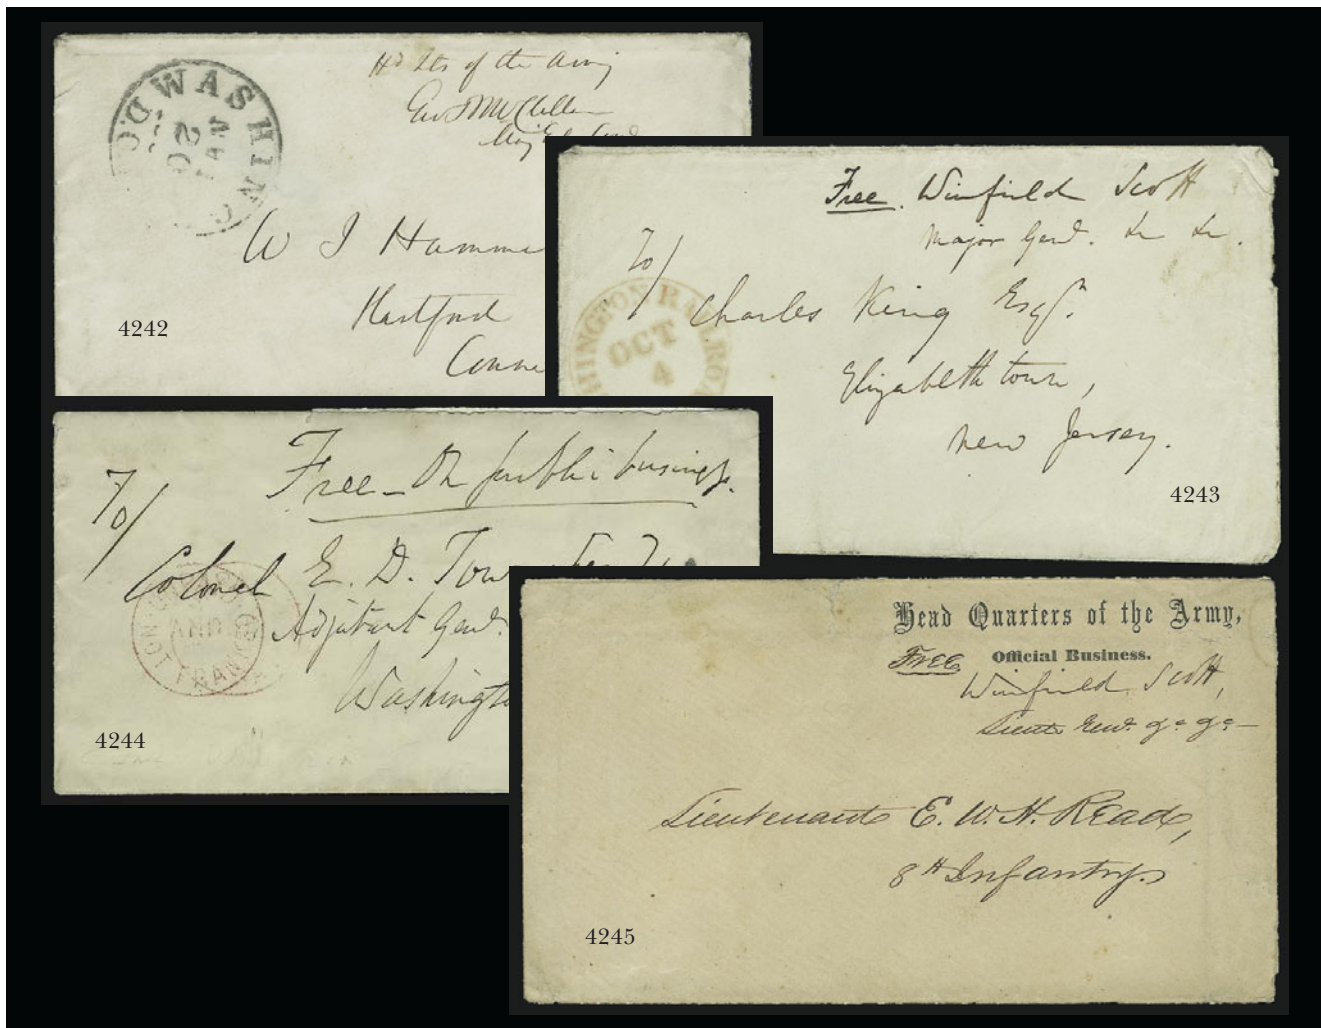 WASHINGTON D.C.
JAN
20
Hd Qts of the Army
Geo B McClellan
Maj Genl
W J Hamme
Hartford
Conne
4242
Free. Winfield Scott
Major Genl. &c &c.
To/
Charles King Esqr.
Elizabethtown,
New Jersey.
HINGTON RAILROA
OCT
4
4243
Free_On public business.
To/
Colonel E. D. Tow
Adjutant Genl.
Washingto
AND
NOT
4244
Head Quarters of the Army,
Official Business.
Free
Winfield Scott,
Lieut. Genl.
Lieutenant E. W. H. Read,
8th Infantry.
4245